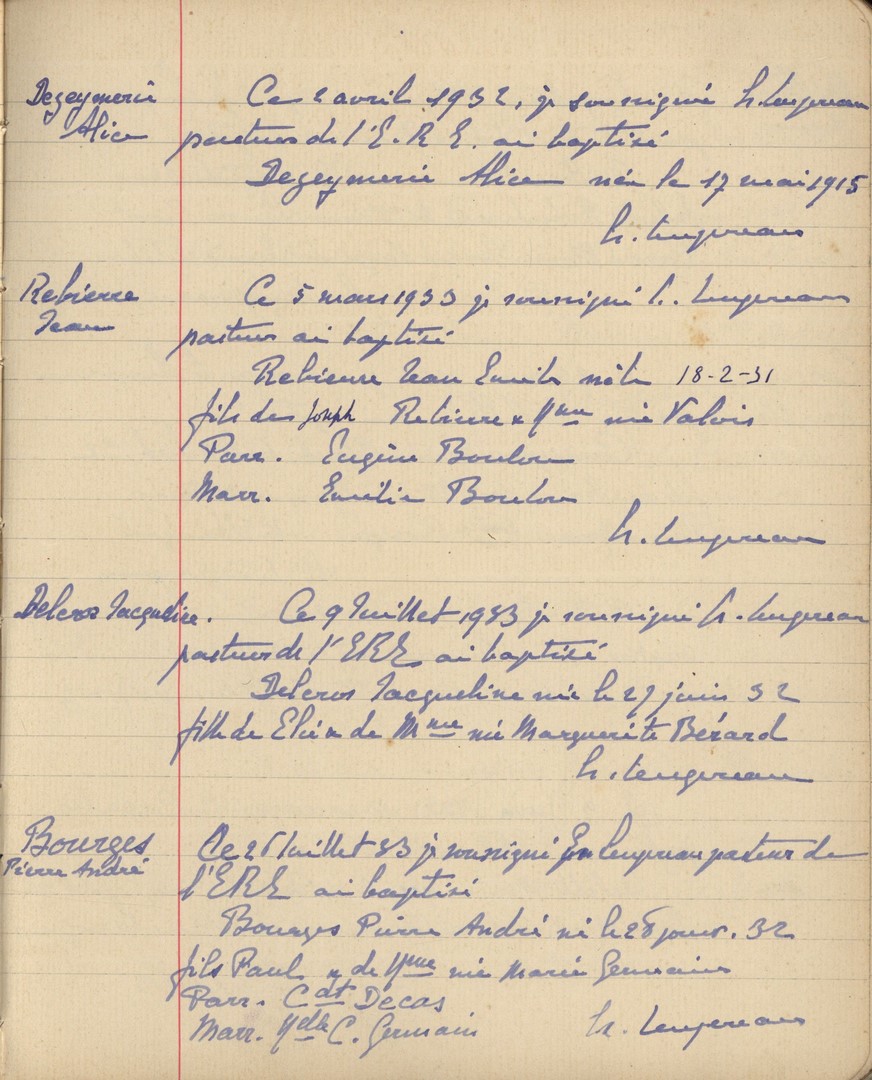 Dezeymerie
Alice
Ce 2 avril 1932, je soussigné h. Lengereau
pasteur de l'E.R.E. ai baptisé
Dezeymerie Alice née le 17 mai 1915
h. Lengereau
Rebierre
Jean
Ce 5 mars 1933 je soussigné h. Lengereau
pasteur ai baptisé
Rebierre Jean Emile né le 18-2-31
fils de Joseph Rebierre & Mme née Valois
Parr. Eugène Boulou
Marr. Emilie Boulou
h. Lengereau
Delcros Jacqueline.
Ce 9 Juillet 1933 je soussigné h. Lengereau
pasteur de l'ERE ai baptisé
Delcros Jacqueline née le 27 juin 32
fille de Elie & de Mme née Marguerite Bérard
h. Lengereau
Bourges
Pierre André
Ce Juillet 33 je soussigné Lengereau pasteur de
l'ERE ai baptisé
Bourges Pierre André né le 28 janv. 32
fils Paul & de Mme née Marie Germain
Parr. Cdt Decas
Marr. Melle C. Germain
h. Lengereau